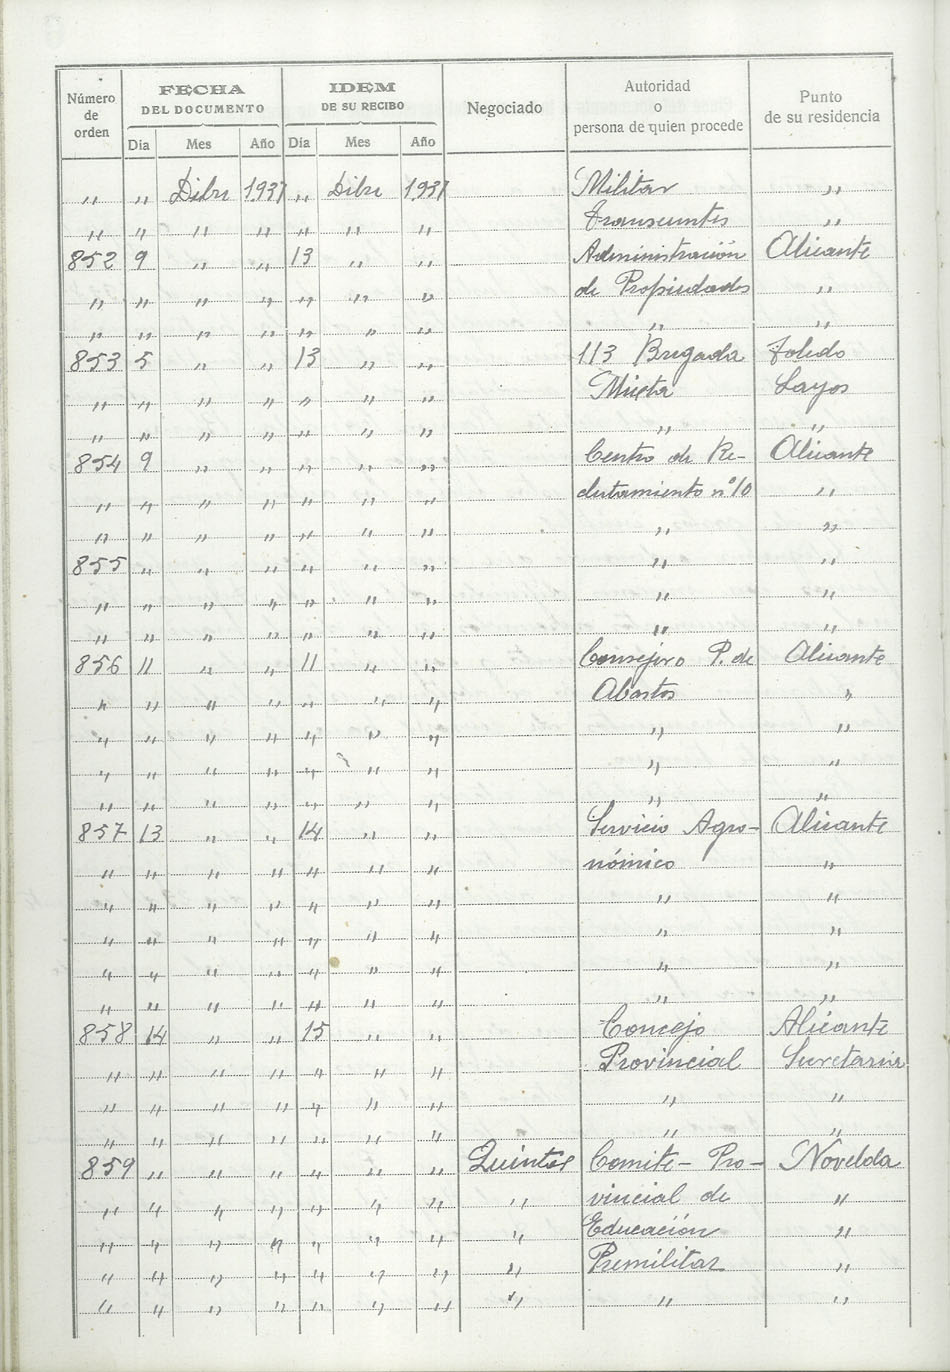 Número de orden | FECHA DEL DOCUMENTO | IDEM DE SU RECIBO | Negociado | Autoridad o persona de quien procede | Punto de su residencia
Dia | Mes | Año | Dia | Mes | Año
" " Dibre 1937 " Dibre 1937 Militar "
" " " " " " " Transeuntes "
852 9 " " 13 " " Administración Alicante
" " " " " " " de Propiedades "
" " " " " " " " "
853 5 " " 13 " " 113 Brigada Toledo
" " " " " " " Mixta Layos
" " " " " " " " "
854 9 " " " " " Centro de Re- Alicante
" " " " " " " clutamiento nº 10 "
" " " " " " " " "
855 " " " " " " " "
" " " " " " " " "
" " " " " " " " "
856 11 " " 11 " " Consejero P. de Alicante
" " " " " " " Abastos "
" " " " " " " " "
" " " " " " " " "
" " " " " " " " "
857 13 " " 14 " " Servicio Agro- Alicante
" " " " " " " nómico "
" " " " " " " " "
" " " " " " " " "
" " " " " " " " "
" " " " " " " " "
858 14 " " 15 " " Concejo Alicante
" " " " " " " Provincial Secretaria
" " " " " " " " "
" " " " " " " " "
859 " " " " " " Quintas Comite- Pro- Novelda
" " " " " " " " vincial de "
" " " " " " " " Educación "
" " " " " " " " Premilitar "
" " " " " " " " " "